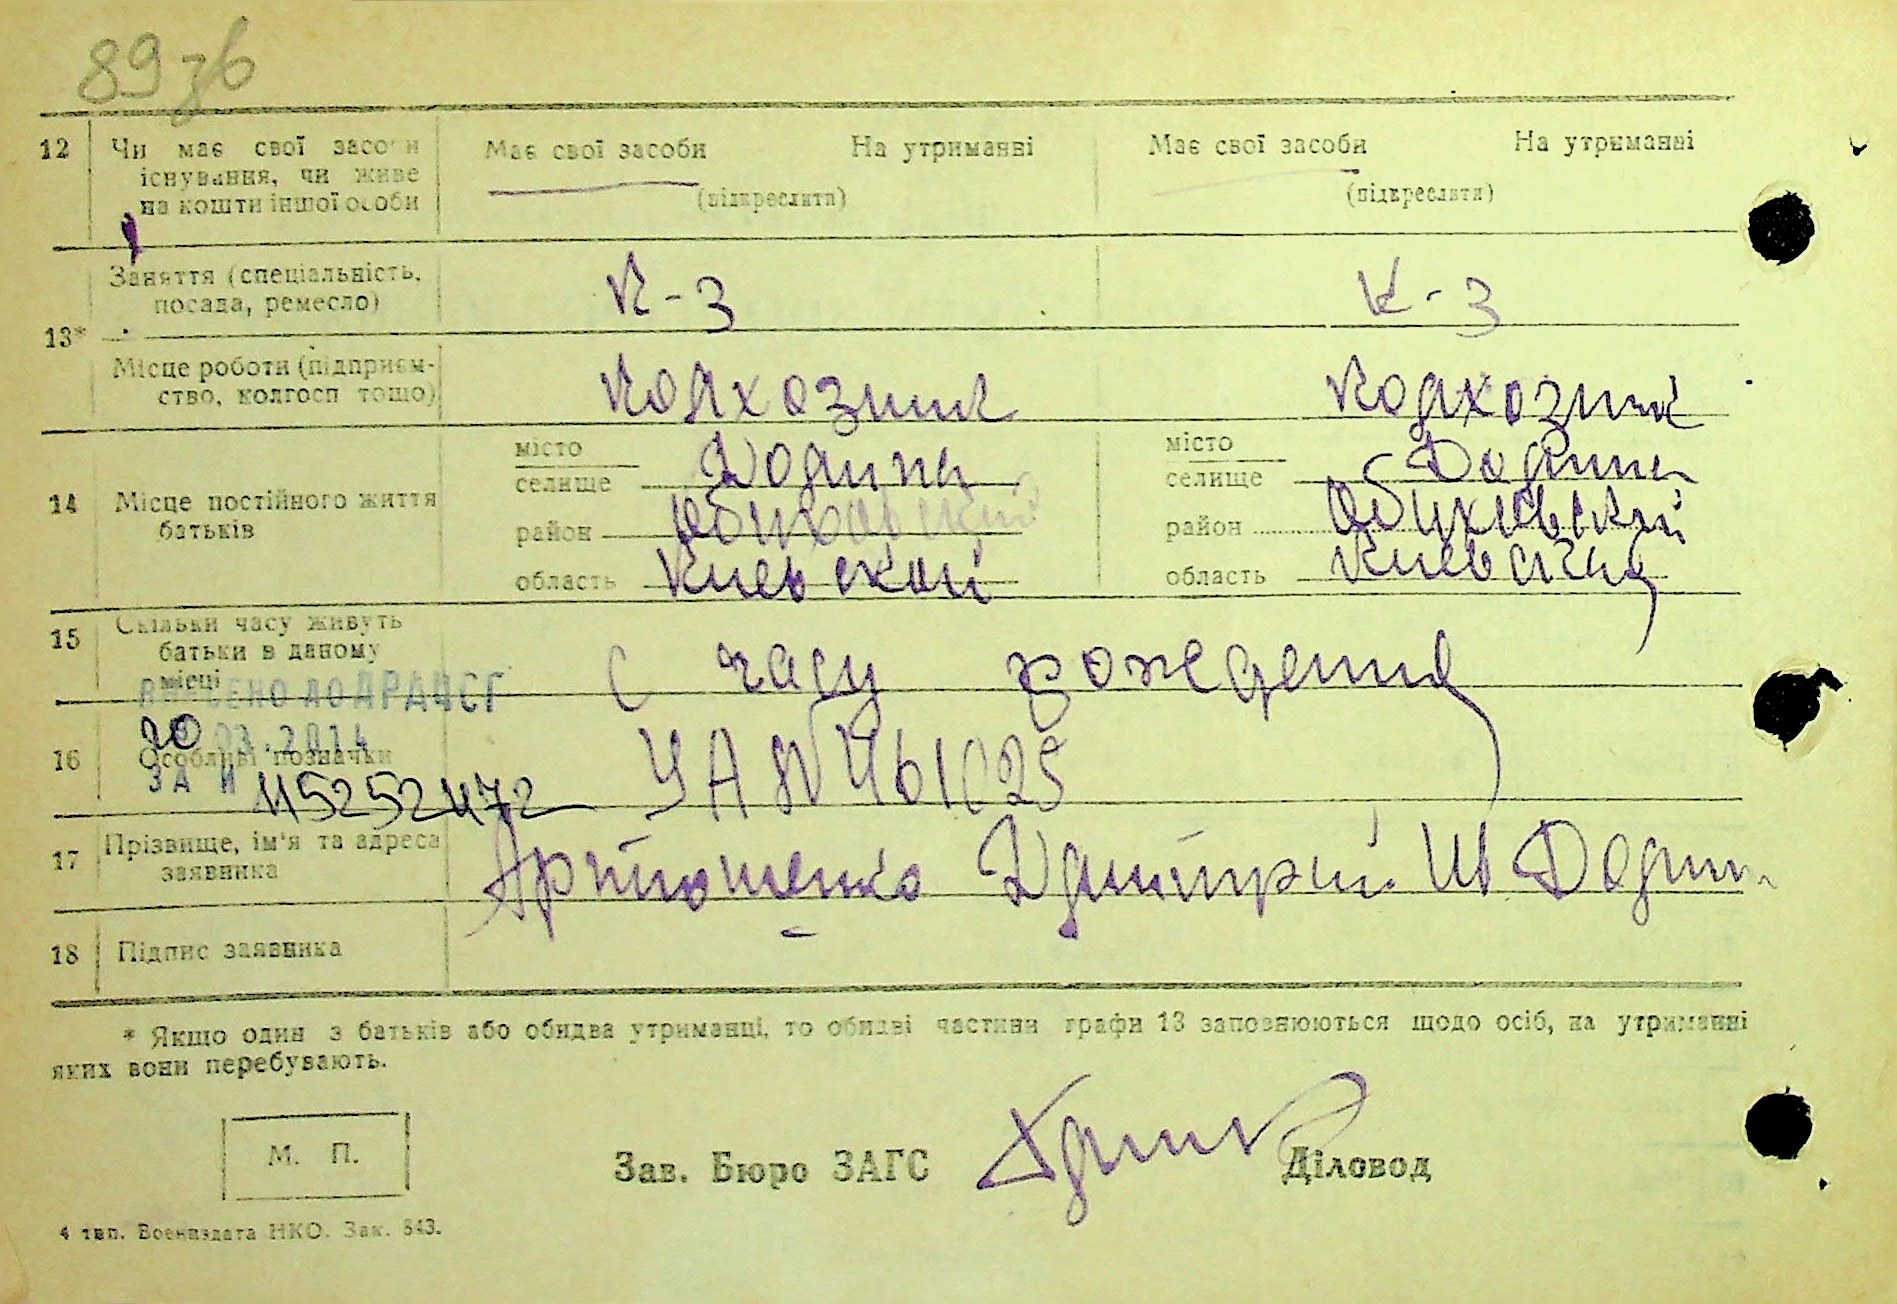 89зв
12 Чи має свої засоби Має свої засоби На утриманні Має свої засоби На утриманні
існування, чи живе
на кошти іншої особи (підкреслити) (підкреслити)
Заняття (спеціальність, К-З К-З
посада, ремесло)
13*
Місце роботи (підприєм- Колхозник Колхозник
ство, колгосп тощо)
місто місто
селище Долина селище Долина
14 Місце постійного життя
батьків район Обуховский район Обуховский
область Киевской область Киевская
15 Скільки часу живуть
батьки в даному
місці с часу рождения
ВНЕСЕНО ДО ДРАЦСГ
20 03.2014
16 Особливі позначки УА № 461025
ЗА № 115252472
17 Прізвище, ім'я та адреса
заявника Артюшенко Дмитрий
18 Підпис заявника
* Якщо один з батьків або обидва утриманці, то обидві частини графи 13 заповнюються щодо осіб, на утриманні
яких вони перебувають.
М. П.
Зав. Бюро ЗАГС Діловод
4 тип. Воениздата НКО. Зак. 843.